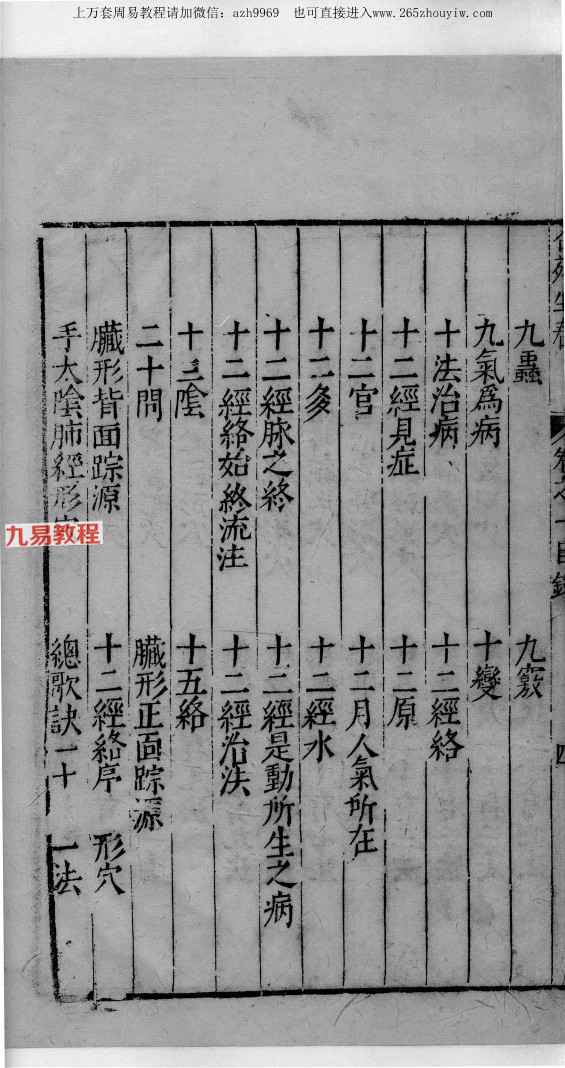 上万套周易教程请加微信：azh9969　也可直接进入www.265zhouyiw.com
九蟲　九竅
九氣爲病　十變
十法治病　十二經絡
十二經見症　十二原
十二官　十二月人氣所在
十二多　十二經水
十二經脉之終　十二經是動所生之病
十二經絡始終流注　十二經治法
十三陰　十五絡
二十問　臟形正面踪源
臟形背面踪源　十二經絡序　形穴
手太陰肺經形　總歌訣二十　一法
九易教程
四